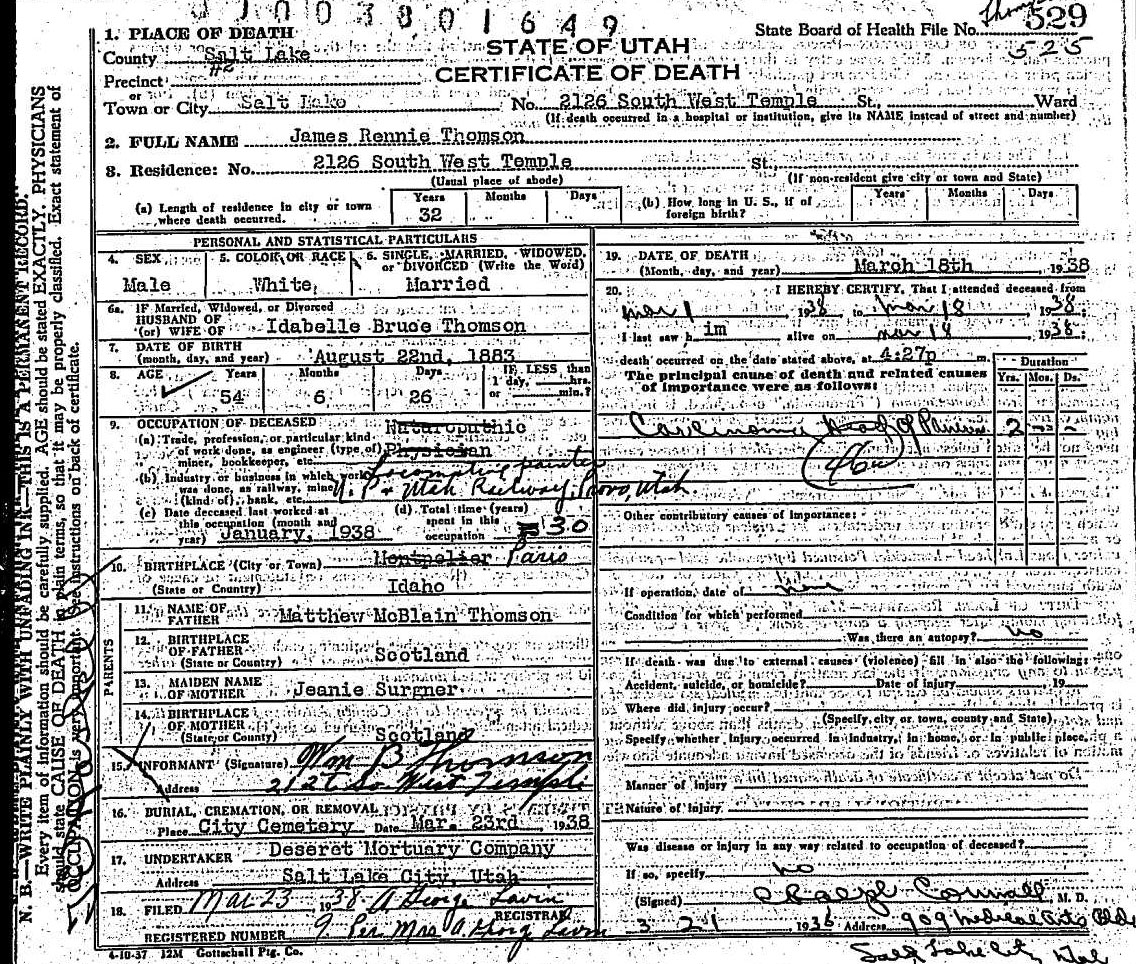 1003801649
1. PLACE OF DEATH
State Board of Health File No. 529
525
County Salt Lake
STATE OF UTAH
#2
Precinct
CERTIFICATE OF DEATH
or
Town or City Salt Lake No. 2126 South West Temple St., Ward
(If death occurred in a hospital or institution, give its NAME instead of street and number)
2. FULL NAME James Rennie Thomson
3. Residence: No. 2126 South West Temple St.
(Usual place of abode) (If non-resident give city or town and State)
(a) Length of residence in city or town where death occurred. Years 32 Months Days
(b) How long in U. S., if of foreign birth? Years Months Days
PERSONAL AND STATISTICAL PARTICULARS
4. SEX 5. COLOR OR RACE 6. SINGLE, MARRIED, WIDOWED, or DIVORCED (Write the Word)
Male White Married
6a. IF Married, Widowed, or Divorced
HUSBAND OF
(or) WIFE OF Idabelle Bruce Thomson
7. DATE OF BIRTH
(month, day, and year) August 22nd, 1883
8. AGE Years Months Days IF LESS than 1 day, hrs. or min.?
54 6 26
9. OCCUPATION OF DECEASED Naturopathic
(a) Trade, profession, or particular kind
of work done, as engineer (type of) Physician
miner, bookkeeper, etc. Locomotive painter
(b) Industry or business in which work
was done, as railway, mine U. P & Utah Railway, Provo, Utah
(kind of), bank, etc.
(c) Date deceased last worked at
this occupation (month and
year) January, 1938
(d) Total time (years)
spent in this
occupation 30
10. BIRTHPLACE (City or Town) Montpelier Paris
(State or Country) Idaho
PARENTS
11. NAME OF FATHER Matthew McBlain Thomson
12. BIRTHPLACE OF FATHER
(State or Country) Scotland
13. MAIDEN NAME OF MOTHER Jeanie Surgner
14. BIRTHPLACE OF MOTHER
(State or Country) Scotland
15. INFORMANT (Signature) Wm B Thomson
Address 2126 So West Temple
16. BURIAL, CREMATION, OR REMOVAL
Place City Cemetery Date Mar. 23rd, 1938
17. UNDERTAKER Deseret Mortuary Company
Address Salt Lake City, Utah
18. FILED Mar 23 1938 A George Lavin
REGISTRAR
REGISTERED NUMBER Per Mrs A. George Lavin
4-10-37 12M Gottschall Ptg. Co.
19. DATE OF DEATH
(Month, day, and year) March 18th 1938
20. I HEREBY CERTIFY, That I attended deceased from
Mar 1 1938 to Mar 18 1938
I last saw h im alive on Mar 18 1938;
death occurred on the date stated above, at 4:27p m.
The principal cause of death and related causes
of importance were as follows:
Duration
Yrs. Mos. Ds.
Carcinoma Head of Pancreas 2
46
Other contributory causes of importance:
If operation, date of
Condition for which performed
Was there an autopsy? no
If death was due to external causes (violence) fill in also the following:
Accident, suicide, or homicide? Date of injury 19
Where did injury occur?
(Specify city or town, county and State)
Specify whether injury occurred in industry, in home, or in public place.
Manner of injury
Nature of injury
Was disease or injury in any way related to occupation of deceased?
If so, specify no
(Signed) Ralph Cornwall M. D.
3 21 1938 Address 909 Medical Arts Bldg
Salt Lake City Utah
N. B.—WRITE PLAINLY WITH UNFADING INK—THIS IS A PERMANENT RECORD.
Every item of information should be carefully supplied. AGE should be stated EXACTLY. PHYSICIANS
should state CAUSE OF DEATH in plain terms, so that it may be properly classified. Exact statement of
OCCUPATION is very important. See instructions on back of certificate.